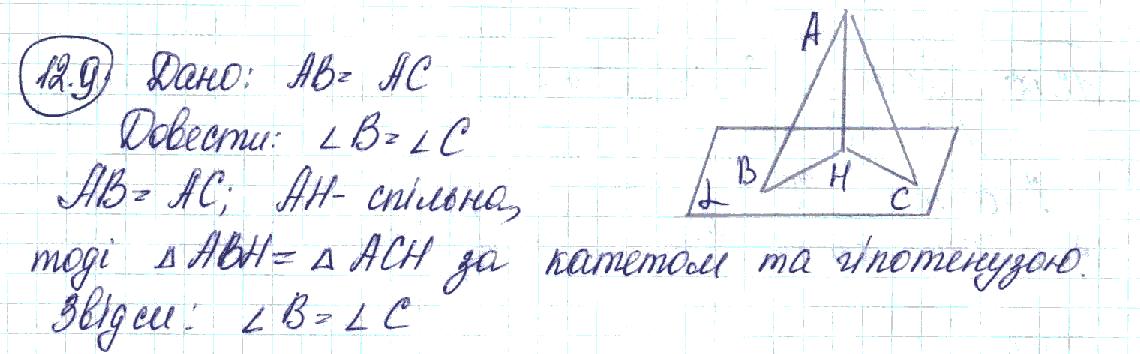 12.9 Дано: AB = AC
Довести: ∠B = ∠C
AB = AC; AH - спільна,
тоді △ABH = △ACH за катетом та гіпотенузою.
Звідси: ∠B = ∠C
A
B
H
C
α